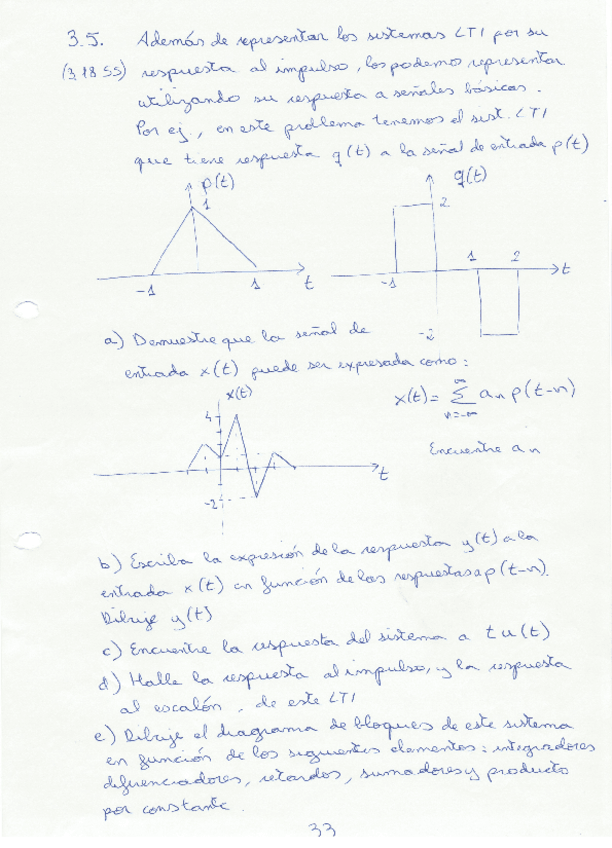 3.5. Además de representar los sistemas LTI por su
(3,18 SS) respuesta al impulso, los podemo representar
utilizando su respuesta a señales básicas.
Por ej., en este problema tenemos el sist. LTI
que tiene respuesta q(t) a la señal de entrada p(t)
p(t)
1
-1
1
t
q(t)
2
-1
1
2
t
-2
a) Demuestre que la señal de
entrada x(t) puede ser expresada como:
x(t) = ∑ aₙ p(t-n)
∞
n=-∞
Encuentre aₙ
x(t)
4
t
-2
b) Escriba la expresión de la respuesta y(t) a la
entrada x(t) en función de las respuestas a p(t-n).
Dibuje y(t)
c) Encuentre la respuesta del sistema a t u(t)
d) Halle la respuesta al impulso, y la respuesta
al escalón, de este LTI
e) Dibuje el diagrama de bloques de este sistema
en función de los siguientes elementos: integradores
diferenciadores, retardos, sumadores y producto
por constante.
33